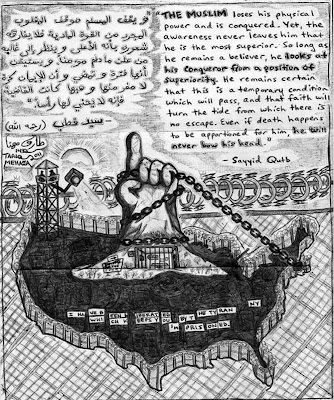 و يقف المسلم موقف المغلوب
المجرد من القوة المادية فلا يفارقه
شعوره بأنه الأعلى و ينظر إلى غالبه
من عل ما دام مؤمنا. و يستيقن
أنها فترة و تمضي و أن للإيمان كرة
لا مفر منها و هبها كانت القاضية
فإنه لا يحني لها رأسا."
سيد قطب (رحمه الله)
"THE MUSLIM loses his physical
power and is conquered. Yet, the
awareness never leaves him that
he is the most superior. So long as
he remains a believer, he looks at
his Conqueror from a position of
superiority. He remains certain
that this is a temporary condition
which will pass, and that faith will
turn the tide from which there is
no escape. Even if death happens
to be apportioned for him, he will
never bow his head."
- Sayyid Qutb
طارق مهنا
TARIQ
MEHANNA
I HAVE BEEN LIBERATED BY THE TYRANNY
IMPRISONED.